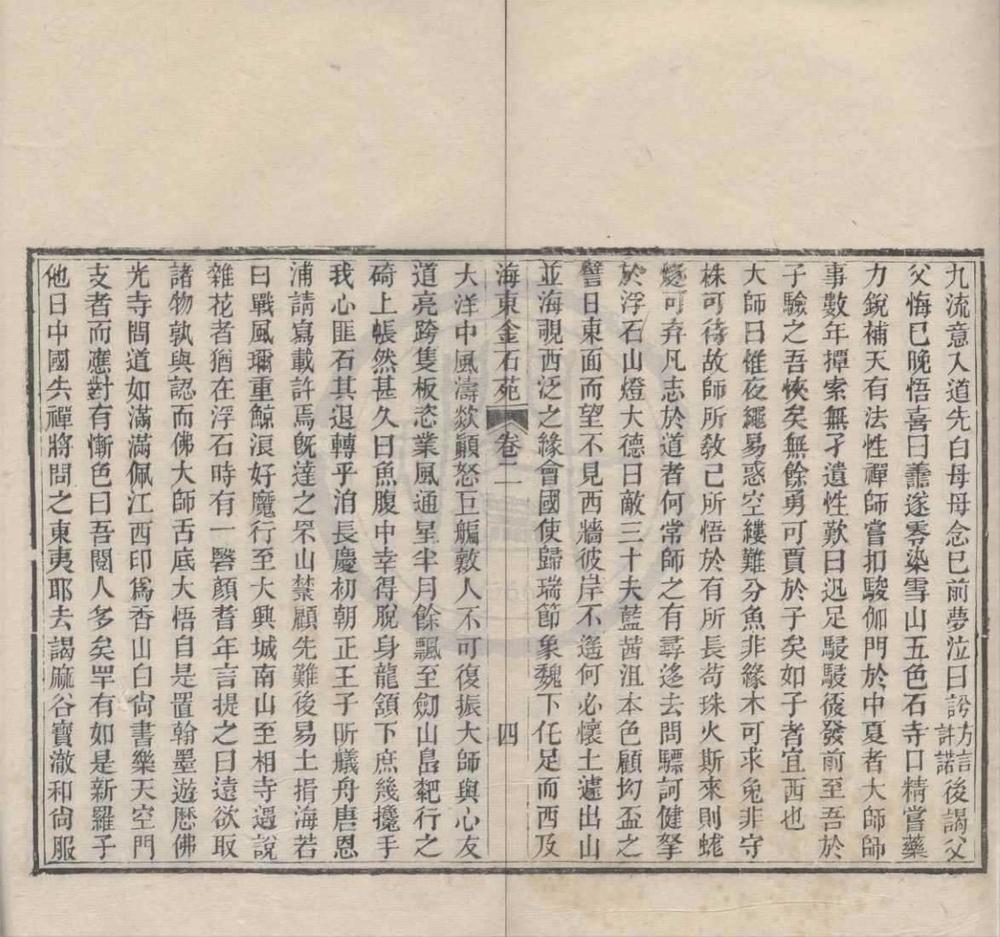 九流意入道先白母母念已前夢泣曰訡方言許諾後謁父
父悔已晚悟喜曰譱遂零染雪山五色石寺口精嘗藥
力銳補天有法性禪師嘗扣駿伽門於中夏者大師師
事數年撢索無孑遺性歎曰迅足駸駸後發前至吾於
子驗之吾悏矣無餘勇可賈於子矣如子者宜西也
大師曰惟夜繩易惑空縷難分魚非緣木可求兔非守
株可待故師所敎己所悟於有所長苟珠火斯來則蜯
燧可弃凡志於道者何常師之有尋迻去問驃訶健拏
於浮石山燈大德日敵三十夫藍茜沮本色顧坳盃之
譬曰東面而望不見西牆彼岸不遙何必懷土遽出山
並海覗西泛之緣會國使歸瑞節象魏下佗足而西及
海東金石苑 卷二 四
大洋中風濤欻顚怒巨艑敦人不可復振大師與心友
道亮跨隻板恣業風通星半月餘飄至劎山㠀耙行之
碕上悵然甚久曰魚腹中幸得脫身龍頷下庶幾攙手
我心匪石其退轉乎洎長慶初朝正王子昕艤舟唐恩
浦請寓載許焉旣達之罘山禁顧先難後易土揖海若
曰戰風珎重鯨浪好魔行至大興城南山至相寺遇說
雜花者猶在浮石時有一䃜顏耆年言提之曰遠欲取
諸物孰與認而佛大師舌底大悟自是置翰墨遊歷佛
光寺問道如滿滿佩江西印爲香山白尙書樂天空門
支者而應對有慚色曰吾閱人多矣罕有如是新羅子
他日中國失禪將問之東夷耶去謁麻谷寶澈和尙服